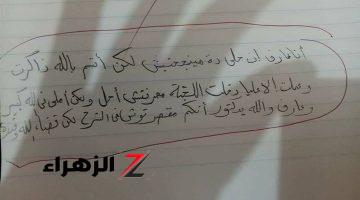 أنا عارف إن حلى ده مينجحنيش لكن أقسم بالله ذاكرت
وعملت الا عليا دخلت اللجنة معرفتش أحل ولكن أملى فى الله كبير
وعارف والله يدكتور أنكم مقصرتوش فى الشرح لكن قضاء الله
الزهراء